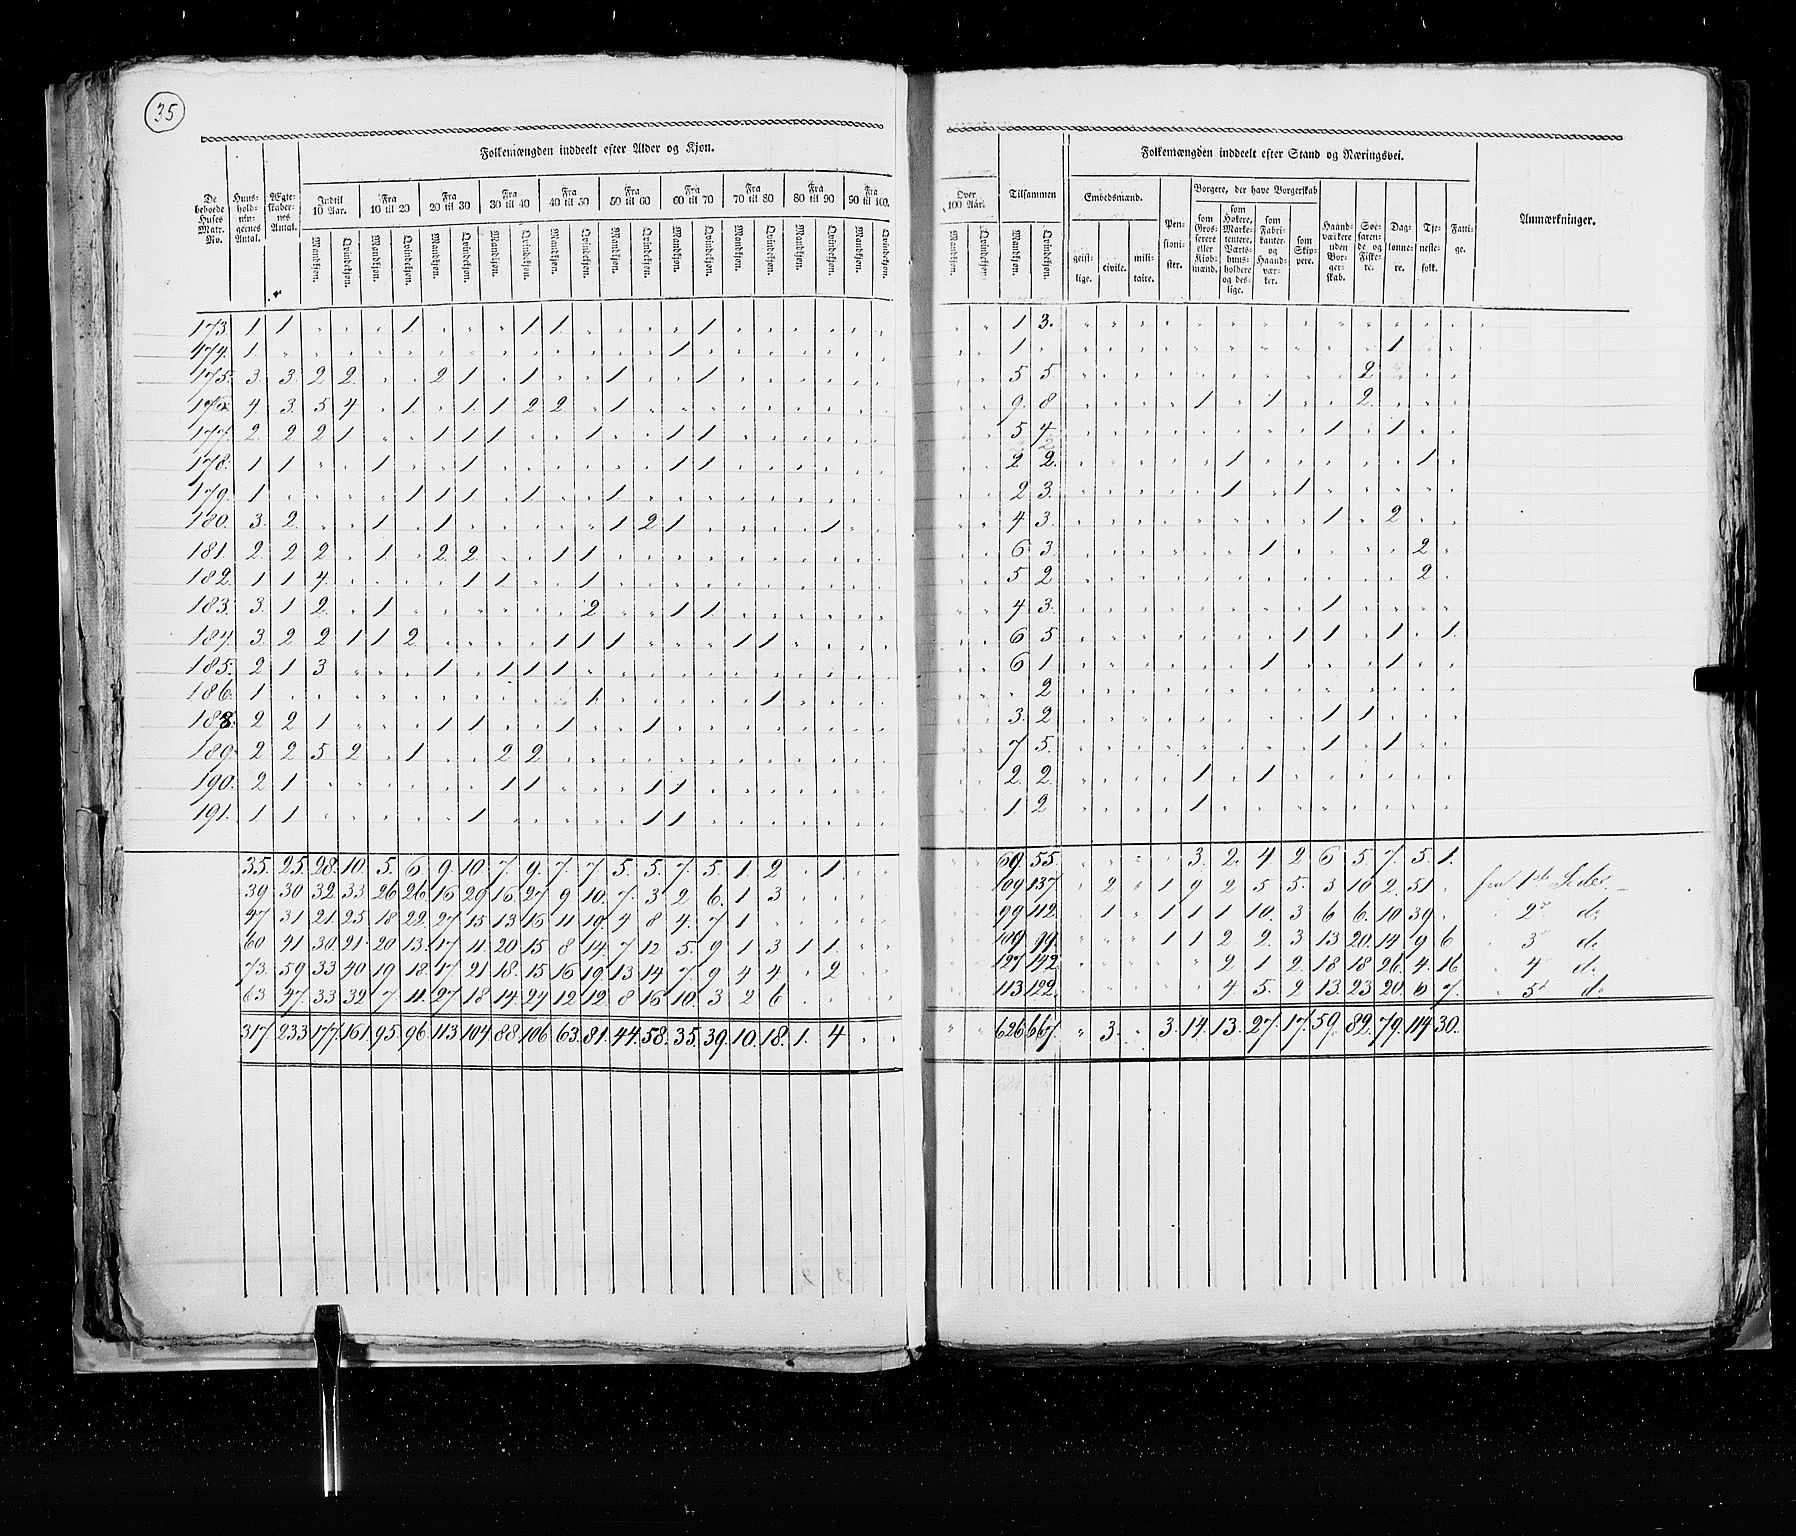 35
Folkemængden inddeelt efter Alder og Kjøn.
De beboede Huses Matr. No. Huus-hold-nin-gernes Antal. Ægte-Skaber-nes Antal. Indtil 10 Aar. Fra 10 til 20 Fra 20 til 30 Fra 30 til 40 Fra 40 til 50 Fra 50 til 60 Fra 60 til 70 Fra 70 til 80 Fra 80 til 90 Fra 90 til 100.
Mandkjøn. Qvindekjøn. Mandkjøn. Qvindekjøn. Mandkjøn. Qvindekjøn. Mandkjøn. Qvindekjøn. Mandkjøn. Qvindekjøn. Mandkjøn. Qvindekjøn. Mandkjøn. Qvindekjøn. Mandkjøn. Qvindekjøn. Mandkjøn. Qvindekjøn. Mandkjøn. Qvindekjøn.
173. 1 1 " " " 1 " " " 1 1 " " " " 1 " " " " "
174. 1 " " " " " " " " " " " " " 1 " " " " " "
175. 3. 3. 2 2. " " 2 1 " 1 " " 1 " " 1 " " " " "
176. 4. 3. 5 4 " 1 " 1 1 2 2 " 1 " " " " " " " "
177. 2. 2 2 1 " " 1 1 1 " " 1 " " 1 1 " " " " "
178. 1 1 " " 1 " " 1 " " " " " " 1 1 " " " " "
179. 1 " " " " 1 1 1 " 1 " " 1 " " " " " " " "
180. 3. 2. " " 1 " 1 " " " " " 1 2 1 " " " " 1 " "
181. 2 2 2 " 1 " 2 2 " " 1 1 " " " " " " " " "
182. 1 1 4. " " " " 1 1 " " 1 " " " " " " " " "
183. 3. 1 2 " 1 " " " " " " 2 " " 1 1 " " " " "
184. 3. 2 2 1 1 2 " " " " 1 1 1 " " " 1 1 " " "
185. 2 1 3 " " " 1 " 1 1 1 " " " " " " " " " "
186. 1 " " " " " " " " " " 1 " " " " " 1 " " "
188. 2 2 1 " " " 1 1 " " 1 " " 1 " " " " " " "
189. 2 2 5 2 " 1 " " 2 2 " " " " " " " " " " "
190. 2 1 " " " " " " 1 1 " " " 1 1 " " " " " "
191. 1 1 " " " " " 1 " " " " " 1 1 " " " " " "
35. 25. 28. 10. 5. 6. 9. 10. 7. 9. 7. 7 5. 5. 7. 5. 1. 2 " 1. " "
39 30 32. 33. 26 26. 16 29 16. 27 9 10. 7. 3 2 6. 1 3 " " " "
47 31 21. 25 18 22. 27 15 13 16 11 19. 4 8 4. 7 1 " " " " "
60 41 30. 21. 20 13. 17 11 20 15 8 14. 7 12 5. 9 1 3 1 1. " "
73. 59 33 40 19 18. 17 21 18. 15 16 19. 13 14 7 9 4 4. " 2 " "
63 47. 33 32 7 11. 27 18 14. 24 12 12. 8 16 10. 3 2 6 " " " "
317 233 177. 161. 95. 96. 113 104 88 106 63. 81. 44. 58. 35. 39. 10. 18. 1. 4 " "
Over 100 Aar. Tilsammen Folkemængden inddeelt efter Stand og Næringsvei. Anmærkninger.
Mandkjøn. Qvindekjøn. Mandkjøn. Qvindekjøn. Embedsmænd. geist-lige. civile. mili-taire. Pen-sioni-ster. Borgere, der have Borgerskab som Gros-serere eller Kjøb-mænd. som Høkere, Marke-tentere, Værts-huus-holdere og des-lige. som Fabri-kanter og Haand-vær-ker. som Skip-pere. Haand-værkere uden Bor-ger-skab. Søe-farende og Fiske-re. Dag-lønne-re. Tje-neste-folk. Fatti-ge.
" " 1 3. " " " " " " " " " " " " "
" " 1 " " " " " " " " " " " 1 " "
" " 5 5. " " " " " " " " " 2 " " "
" " 9. 8 " " " " 1 " 1 " " 2. " " "
" " 5 4 " " " " " " " " 1 " 1 " "
" " 2 2. " " " " " 1 " " " " " 1 "
" " 2 3. " " " " " 1 " 1 " " " " "
" " 4 3. " " " " " " " " 1 " 2 " "
" " 6 3. " " " " " " 1 " " " " 2 "
" " 5 2 " " " " " " " " " " " 2 "
" " 4 3. " " " " " " " " 1 " " " "
" " 6 5 " " " " " " " 1 1 " 1 " 1.
" " 6 1. " " " " " " 1 " " " 1 " "
" " " 2 " " " " " " " " " " " " "
" " 3. 2 " " " " " " " " 1 1 " " "
" " 7 5. " " " " " " " " 1 " 1 " "
" " 2. 2. " " " " 1 " 1 " " " " " "
" " 1. 2 " " " " 1 " " " " " " " "
" " 69. 55. " " " " 3. 2. 4 2 6 5. 7. 5. 1.
" " 109 137. " 2 " 1 9 2 5 5. 3 10 2. 51 " fra 1ste Sider
" " 99 112. " 1 " 1 1 1 10. 3 6 6. 10 39. " " 2en do
" " 109. 99. " " " 1 1 2 2. 3 13 20. 14 9 6 " 3 do
" " 127 142. " " " " " 2 1 2. 18 18 26. 4. 16 " 4 do
" " 113. 122. " " " " " 4 5. 2 13. 23 20. 6 7. " 5 do
" " 626 667. " 3. " 3. 14. 13. 27. 17. 59. 89. 79. 114 30.